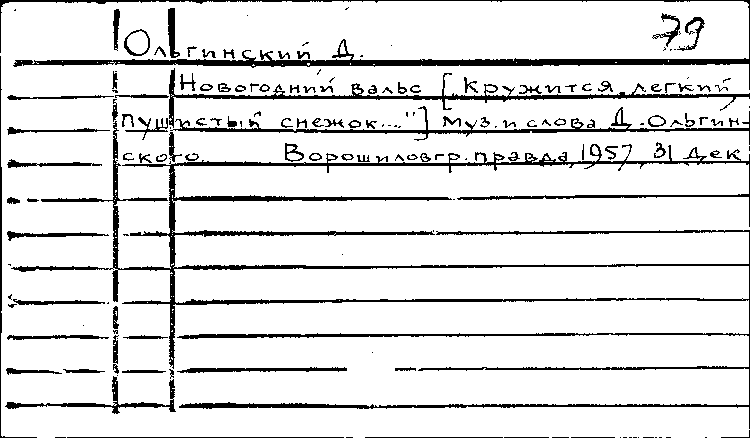 79
Ольгинский Д.
Новогодний вальс ["Кружится легкий,
пушистый снежок..."] Муз. и слова Д. Ольгин-
ского. Ворошиловгр. правда, 1957, 31 дек.